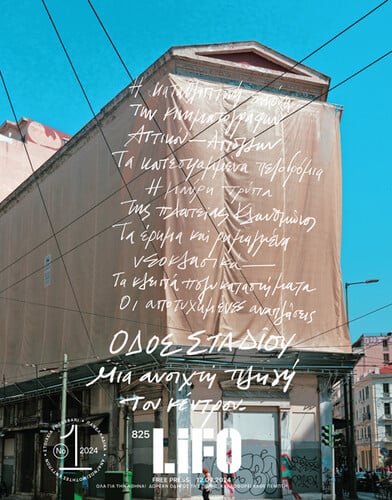 Η καταθλιπτική σκόνη
Των κινηματογράφων
Αττικον—Απολλων
Τα κατεστραμμενα πεζοδρόμια
Η μαυρη τρυπα
Της πλατειας Κλαυθμώνος
Τα έρημα και ρημαγμένα
νεοκλασικα—
Τα κλειστά πολυκαταστήματα
Οι αποτυχημένες αναπλάσεις
ΟΔΟΣ ΣΤΑΔΙΟΥ
Μια ανοιχτή πληγή
Του κέντρου.
No 1 2024
825
LiFO
FREE PRESS 12.09.2024